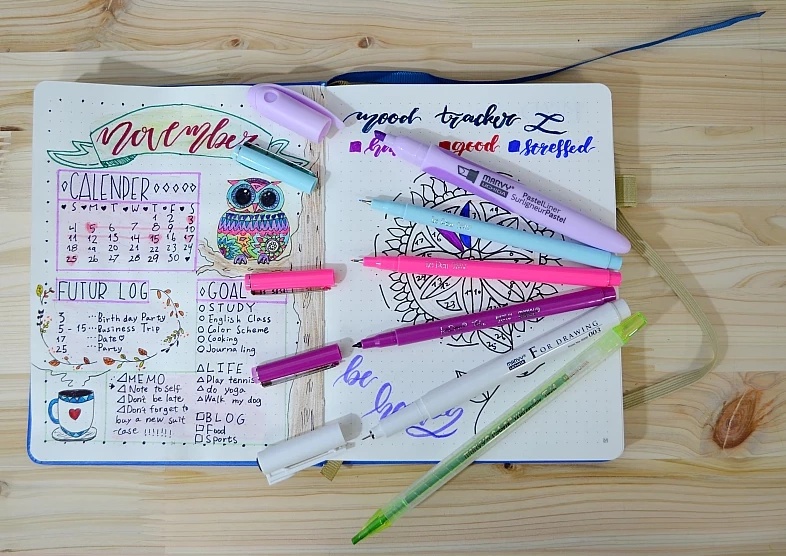 november
CALENDER
S M T W T F S
1 2 3
4 5 6 7 8 9 10
11 12 13 14 15 16 17
18 19 20 21 22 23 24
25 26 27 28 29 30
FUTUR LOG
3 ... Birthday Party
5 - 15 ... Business Trip
17 ... Date
25 ... Party
MEMO
Note to self
Don't be late
Don't forget to
buy a new suit
-case !!!!!!!
GOAL
STUDY
English Class
Color Scheme
Cooking
Journaling
LIFE
Play tennis
do yoga
Walk my dog
BLOG
Food
Sports
mood tracker
good stressed
MARVY
PastelLiner
SurligneurPastel
be
MARVY FOR DRAWING 003